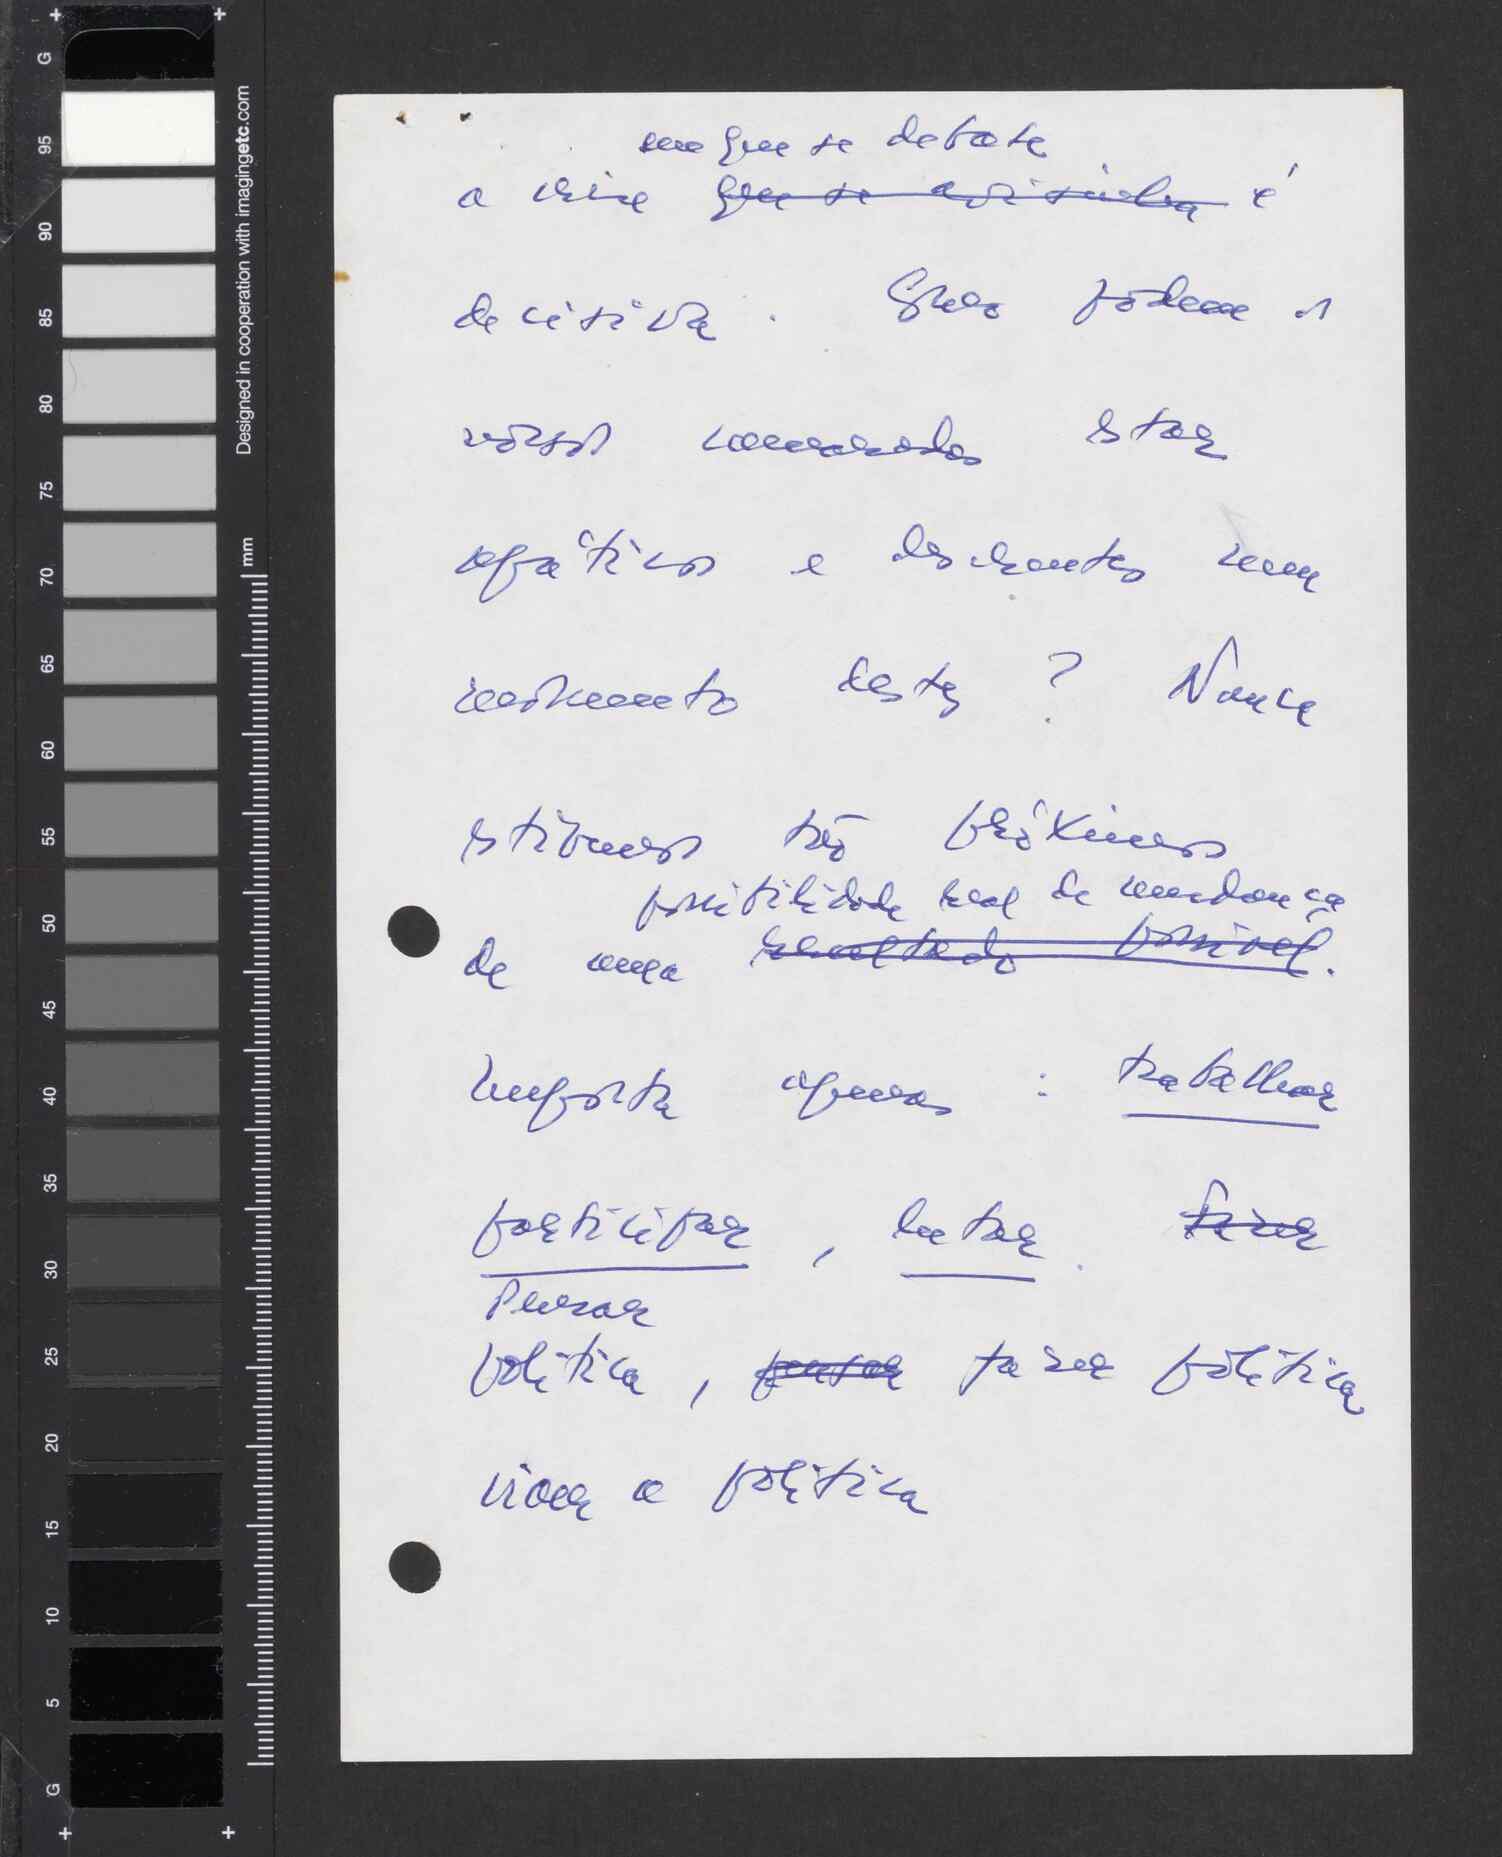 em que se debate
a crise que se avizinha é
decisiva. Como podem os
nossos camaradas estar
apáticos e descrentes num
momento deste? Nunca
estivemos tão próximos
possibilidade real de mudança
de uma resultado possível.
Importa apenas : trabalhar
participar, lutar. Fazer
Pensar
política, pensar fazer política
viver a política
Designed in cooperation with imagingetc.com
mm
G
95
90
85
80
75
70
65
60
55
50
45
40
35
30
25
20
15
10
5
G